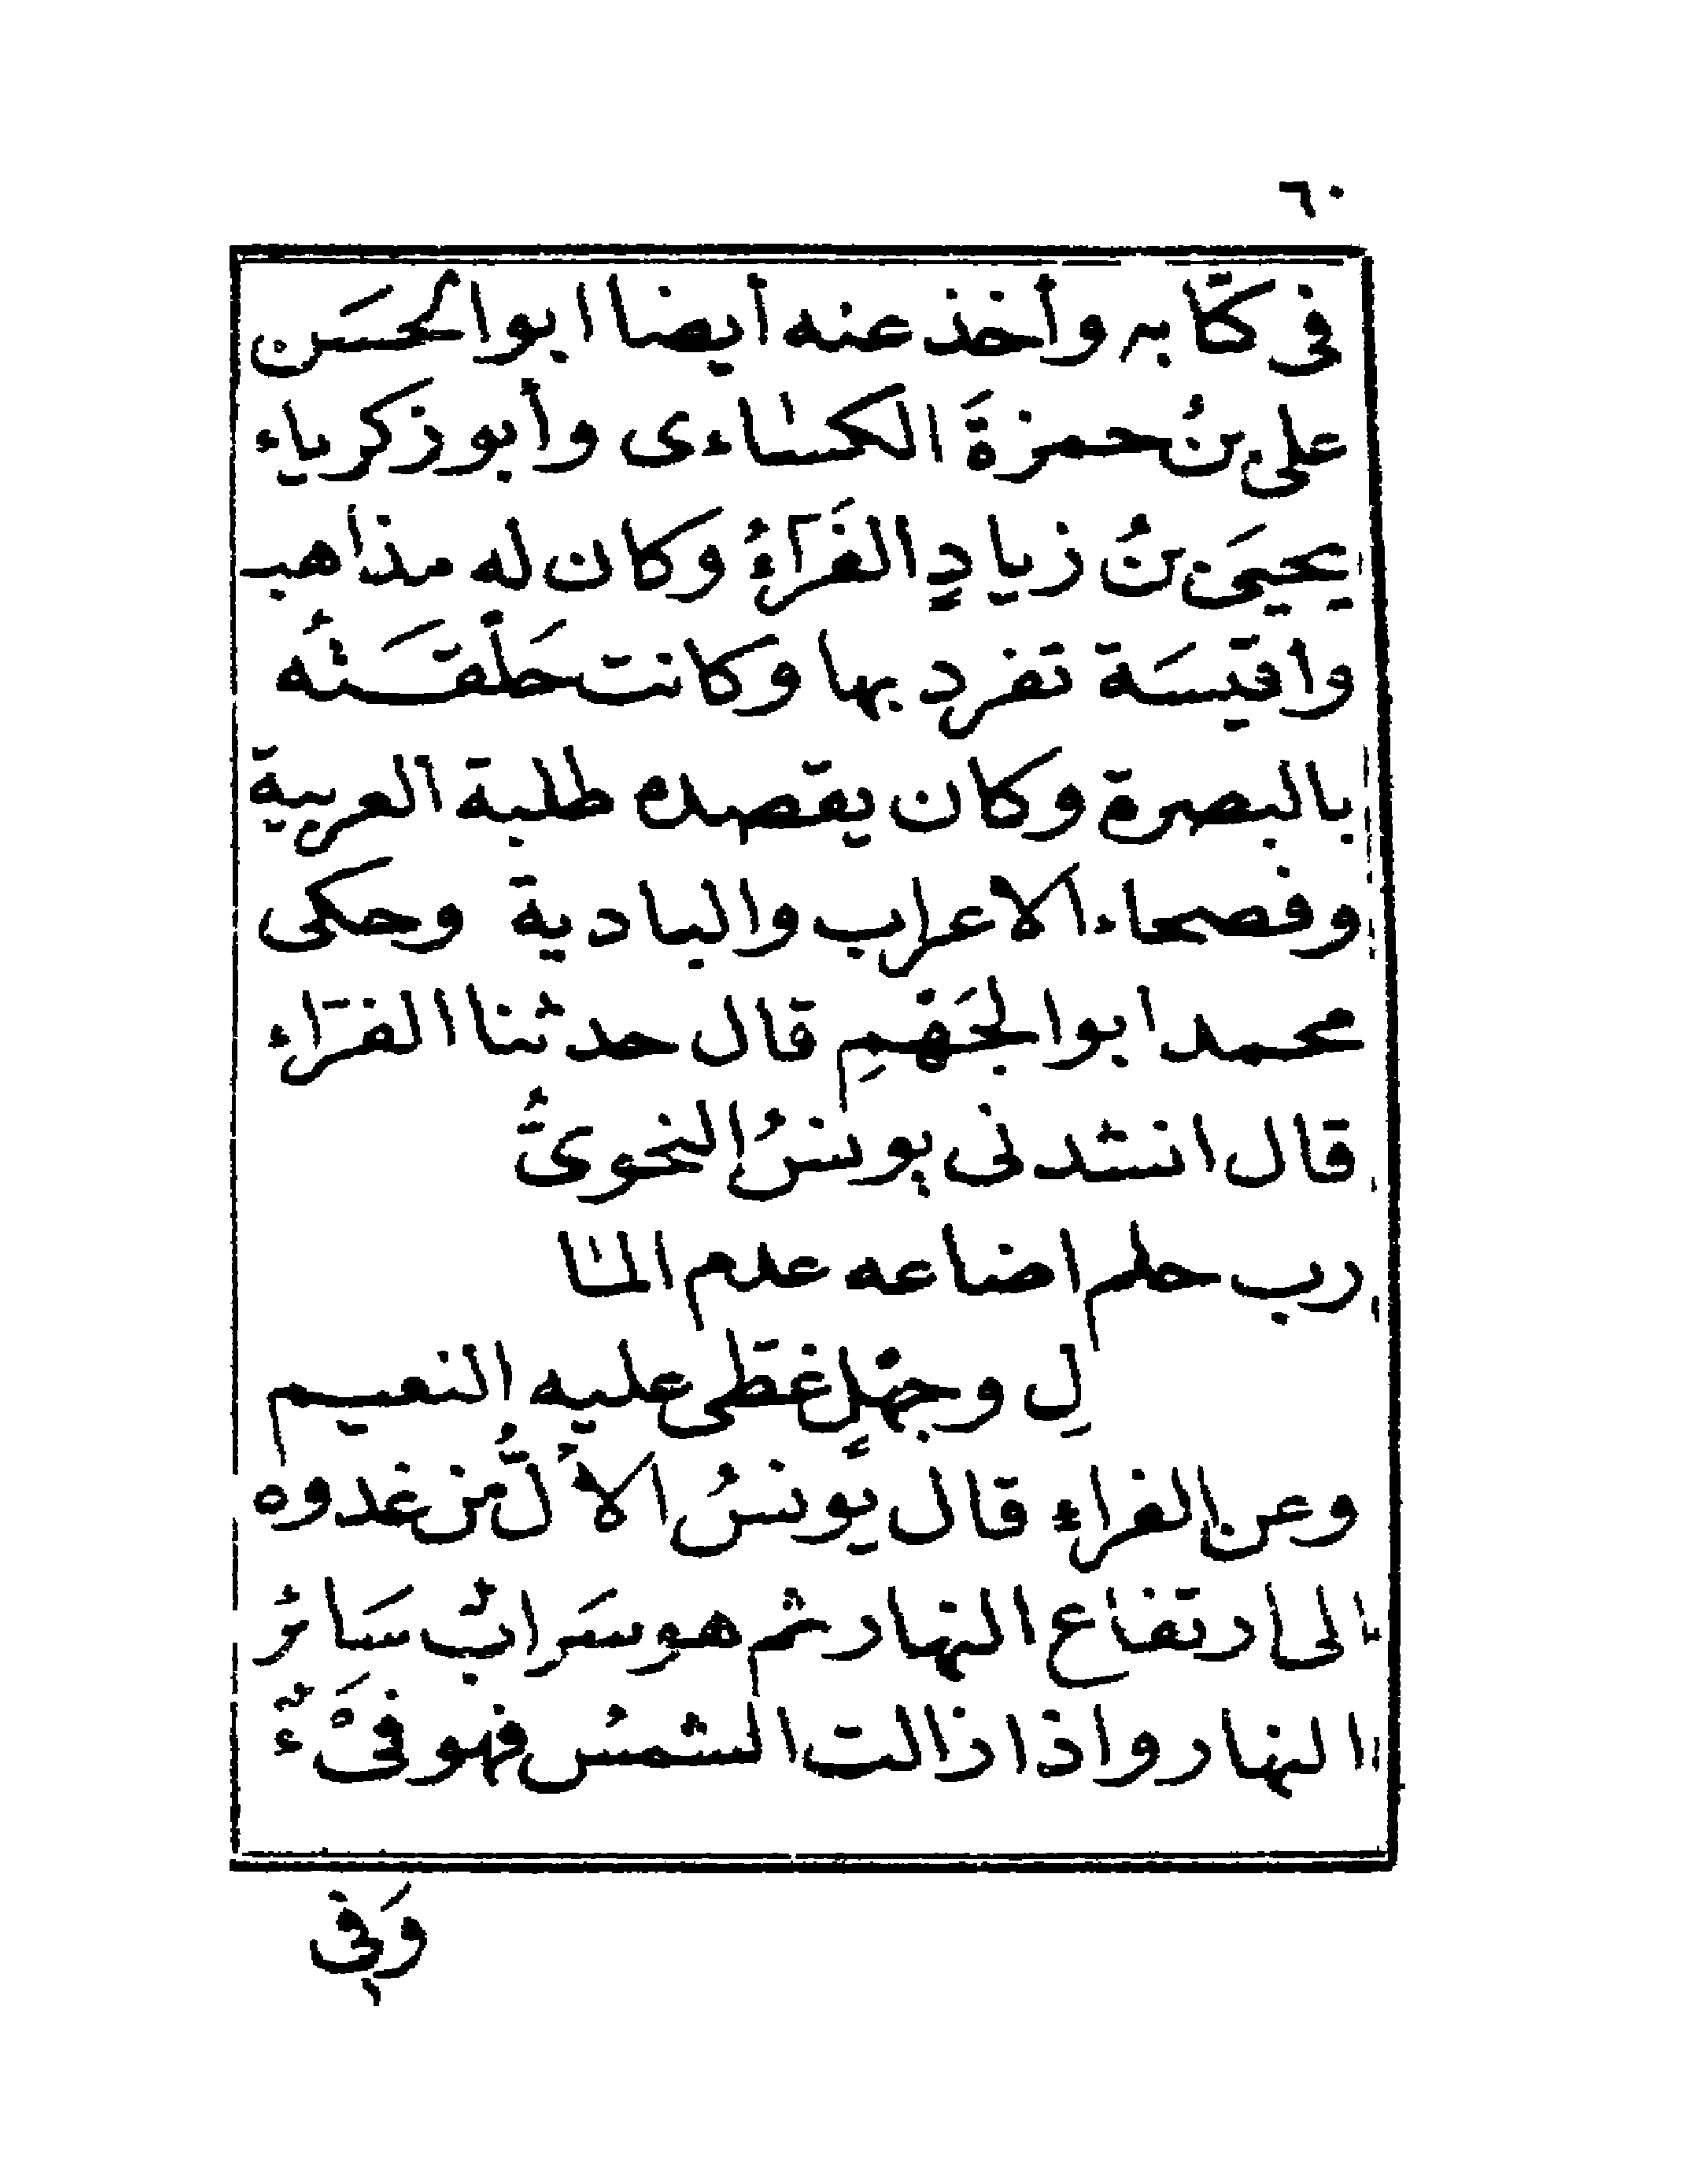 ٦٠
فى كتابه وأخذ عنه أيضا ابو الحسَن
على بنُ حمزةَ الكساءى وأبو زكرياء
يحيىَ بنُ زيادٍ الفَرَّآءُ وكان له مذاهب
وأقيسَة تفرد بها وكانت حَلْقَتُه
بالبصرة وكان يقصده طلبة العربية
وفصحاء الاعراب والبادية وحكى
محمد ابو الجَهْمِ قال حدثنا الفرّاء
قال انشدنى يونسُ النحوىُّ
رب حلم اضاعه عدم الما
لِ وجهلٍ غطّى عليه النعيم
وعن الفراء قال يونسُ الاَلُّ من غدوه
الى ارتفاع النهار ثم هو سَرابٌ سَائر
النهار واذا زالت الشمسُ فهو فَىْءٌ
وَفى